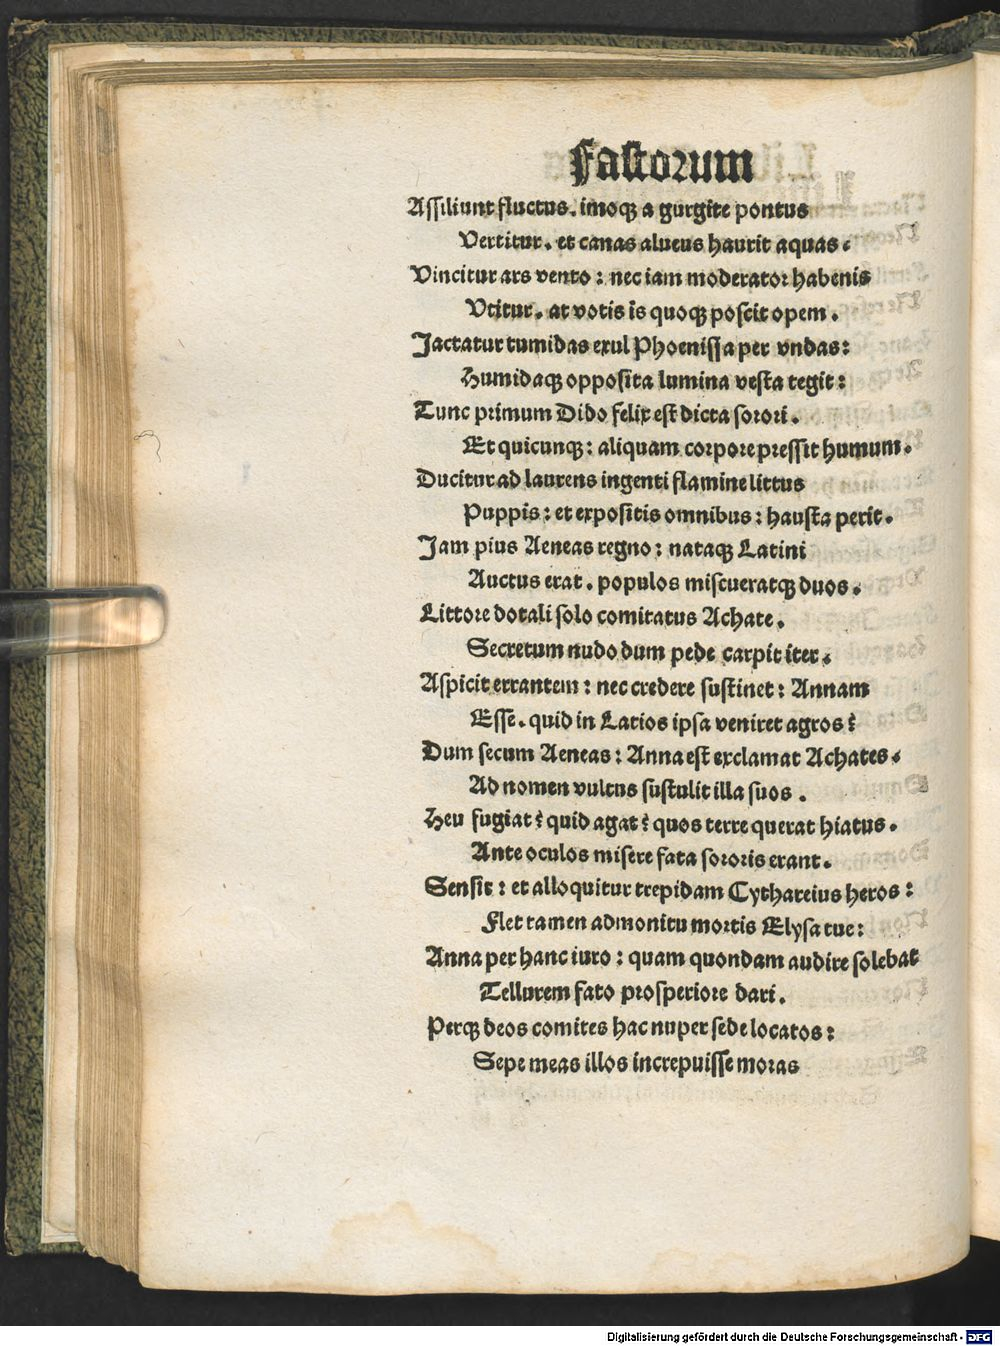 Fastorum
Assiliunt fluctus. imoqꝫ a gurgite pontus
Vertitur. et canas alueus haurit aquas.
Vincitur ars vento: nec iam moderator habenis
Vtitur. at votis is quoqꝫ poscit opem.
Jactatur tumidas exul Phoenissa per vndas:
Humidaqꝫ opposita lumina vesta tegit:
Tunc primum Dido felix est dicta sorori.
Et quicunqꝫ: aliquam corpore pressit humum.
Ducitur ad laurens ingenti flamine littus
Puppis: et expositis omnibus: hausta perit.
Jam pius Aeneas regno: nataqꝫ Latini
Auctus erat. populos miscueratqꝫ duos.
Littore dotali solo comitatus Achate.
Secretum nudo dum pede carpit iter.
Aspicit errantem: nec credere sustinet: Annam
Esse. quid in Latios ipsa veniret agros?
Dum secum Aeneas: Anna est exclamat Achates.
Ad nomen vultus sustulit illa suos.
Heu fugiat? quid agat? quos terre querat hiatus.
Ante oculos misere fata sororis erant.
Sensit: et alloquitur trepidam Cythareius heros:
Flet tamen admonitu mortis Elysa tue:
Anna per hanc iuro: quam quondam audire solebat
Tellurem fato prosperiore dari.
Perqꝫ deos comites hac nuper sede locatos:
Sepe meas illos increpuisse moras
Digitalisierung gefördert durch die Deutsche Forschungsgemeinschaft - DFG